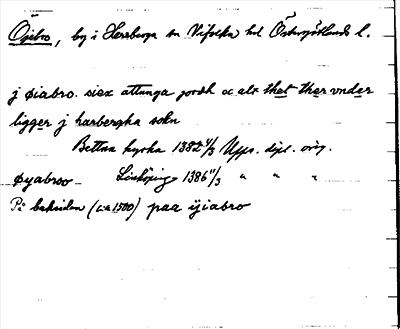 Öjebro, by i Herrberga sn Vifolka hd Östergötlands l.
j øiabro. siex attunga jordh oc alt thet ther vnder
ligger j harbergha sokn
Bettna kyrka 1382 4/3 Upps. dipl. orig.
øyabroo Linköping 1386 11/3 " " "
På baksidan (ca 1500) paa øiabro